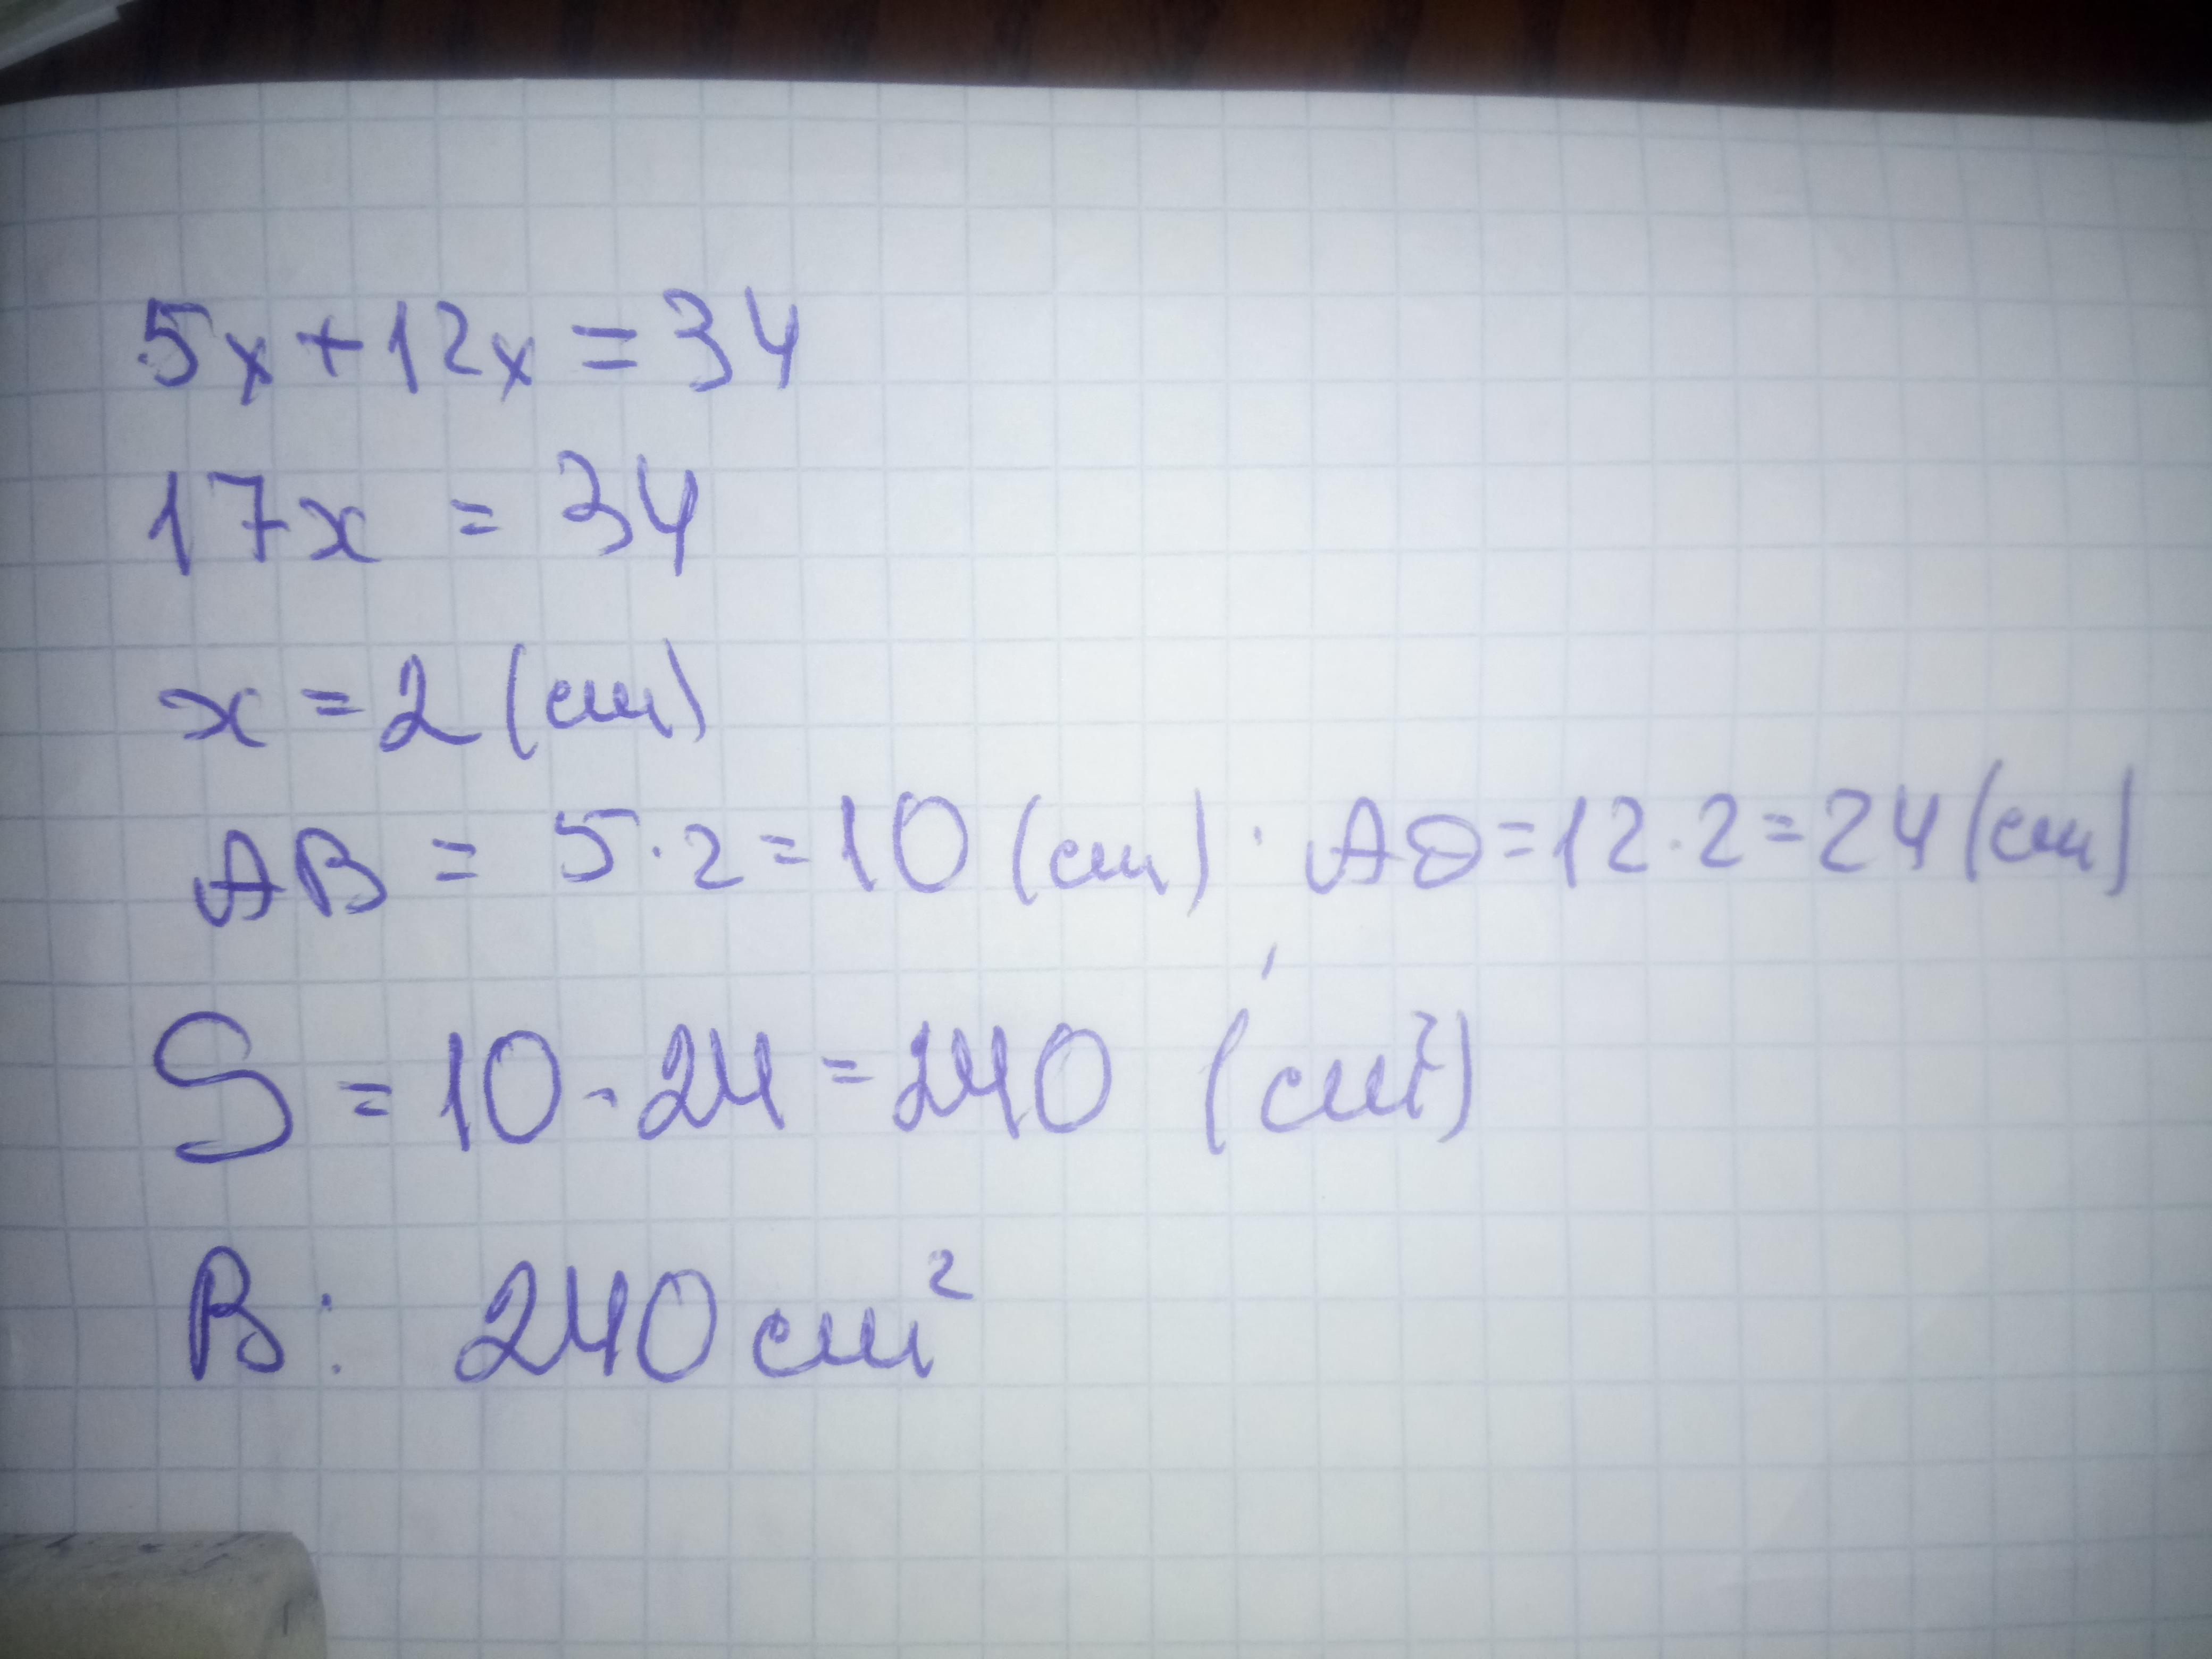 5x+12x=34
17x = 34
x=2 (см)
AB = 5·2=10 (см) · AD=12·2=24 (см)
S=10·24=240 (см²)
В: 240 см²